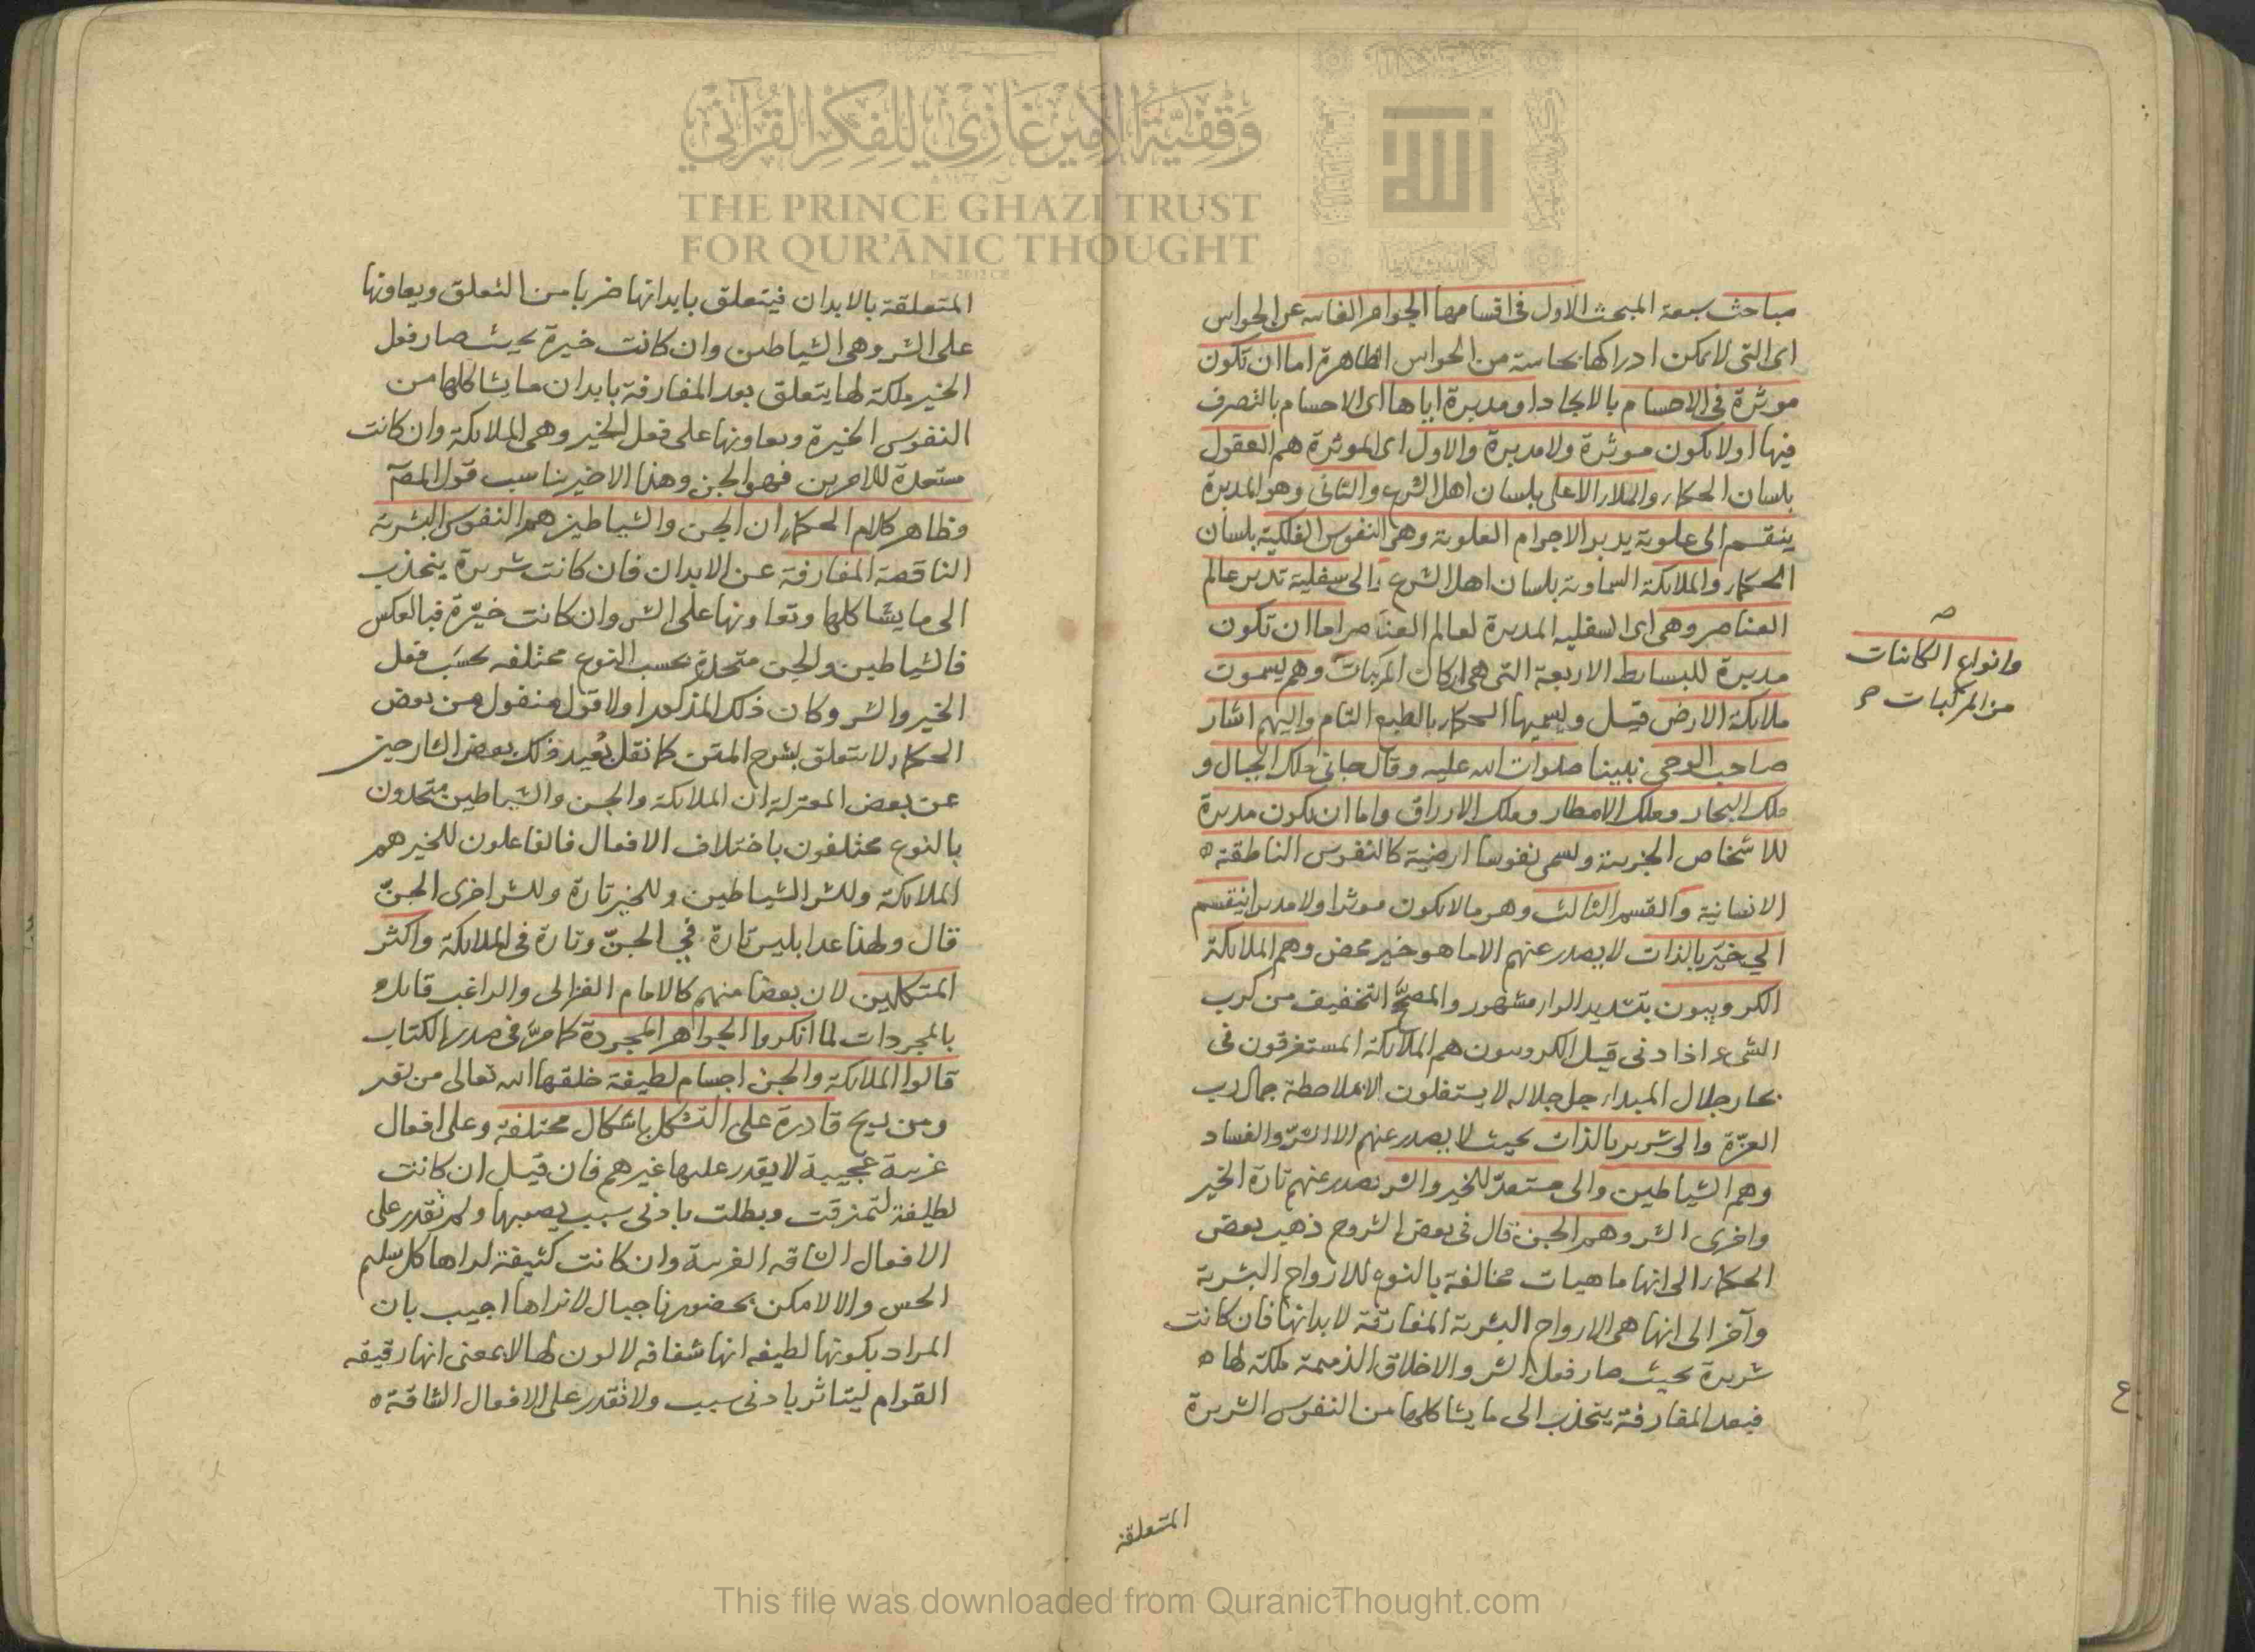 وقفية الأمير غازي للفكر القرآني
THE PRINCE GHAZI TRUST
FOR QUR'ĀNIC THOUGHT
الله
مباحث سبعة المبحث الاول فى اقسامها الجواهر الغائبه عن الحواس
اى التى لا يمكن ادراكها بحاسة من الحواس الظاهرة اما ان تكون
موثرة فى الاجسام بالايجاد او مدبرة اياها اى الاجسام بالتصرف
فيها او لا يكون موثرة ولا مدبرة والاول اى الموثرة هم العقول
بلسان الحكماء والملاء الاعلى بلسان اهل الشرع والثانى وهو المدبرة
ينقسم الى علوية يدبر الاجرام العلوية وهى النفوس الفلكية بلسان
الحكماء والملايكة السماوية بلسان اهل الشرع والى سفلية تدبر عالم
العناصر وهى اى السفليه المدبرة لعالم العناصر اما ان تكون
مدبرة للبسايط الاربعة التى هى اركان المركبات وهم يسمون
ملايكة الارض قيل ويسميها الحكماء بالطبع التام واليهم اشار
صاحب الوحى نبينا صلوات الله عليه وقال جانى ملك الجبال و
ملك البحار وملك الامطار وملك الارزاق واما ان يكون مدبرة
للاشخاص الجزيية وتسمى نفوسا ارضية كالنفوس الناطقة
الانسانية والقسم الثالث وهو ما لا يكون موثرا ولا مدبرا ينقسم
الي خيّر بالذات لا يصدر عنهم الا ما هو خير محض وهم الملايكة
الكروبيون بتشديد الراء مشهور والمصحّح التخفيف من كرب
الشىء اذا دنى قيل الكروبيون هم الملايكة المستغرقون فى
بحار جلال المبداء جل جلاله لا يستغلون الا بملاحظة جمال رب
العزّة والى شرير بالذات بحيث لا يصدر عنهم الا الشرّ والفساد
وهم الشياطين والى مستعدّ للخير والشر يصدر عنهم تارة الخير
واخرى الشر وهم الجن قال فى بعض الشروح ذهب بعض
الحكماء الى انها ماهيات مخالفة بالنوع للارواح البشرية
وآخر الى انها هى الارواح البشرية المفارقة لابدانها فان كانت
شريرة بحيث صار فعل الشر والاخلاق الذميمة ملكة لها
فبعد المفارقة ينجذب الى ما يشاكلها من النفوس الشريرة
المتعلقة
وانواع الكائنات
من المركبات صح
المتعلقة بالابدان فيتعلق بابدانها ضربا من التعلق ويعاونها
على الشر وهى الشياطين وان كانت خيرة بحيث صار فعل
الخير ملكة لها يتعلق بعد المفارقة بابدان ما يشاكلها من
النفوس الخيرة ويعاونها على فعل الخير وهى الملايكة وان كانت
مستعدة للامرين فهو الجن وهذا الاخير يناسب قول المصآ
وظاهر كلام الحكماء ان الجن والشياطين هم النفوس البشرية
الناقصة المفارقة عن الابدان فان كانت شريرة ينجذب
الى ما يشاكلها وتعاونها على الشر وان كانت خيّرة فبالعكس
فالشياطين والجن متحدة بحسب النوع مختلفه بحسب فعل
الخير والشر وكان ذلك المذكور اولا قول منقول من بعض
الحكماء لا يتعلق بشرح المتن كما نقل بُعيد ذلك بعض الشارحين
عن بعض المعتزلة ان الملايكة والجن والشياطين متحدون
بالنوع مختلفون باختلاف الافعال فالفاعلون للخير هم
الملايكة وللشر الشياطين وللخير تارة وللشر اخرى الجنّ
قال ولهذا عد ابليس تارة في الجنّ وتارة فى الملايكة واكثر
المتكلمين لان بعضا منهم كالامام الغزالى والراغب قايلو
بالمجردات لما انكروا الجواهر المجردة كما مرّ فى صدر الكتاب
قالوا الملايكة والجن اجسام لطيفة خلقها الله تعالى من نور
ومن ريح قادرة على التشكل باشكال مختلفة وعلى افعال
غريبة عجيبة لا يقدر عليها غيرهم فان قيل ان كانت
لطيفة لتمزقت وبطلت بادنى سبب يصيبها ولم تقدر على
الافعال الشاقه الغريبة وان كانت كثيفة لراها كل سليم
الحس والا لامكن بحضورنا جبال لا نراها اجيب بان
المراد بكونها لطيفه انها شفافه لا لون لها لا بمعنى انها رقيقه
القوام ليتاثر بادنى سبب ولا تقدر على الافعال الشاقة
This file was downloaded from QuranicThought.com